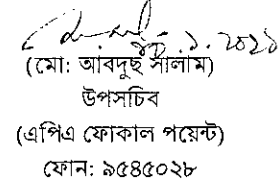 (মো: আবদুছ সালাম)
উপসচিব
(এপিএ ফোকাল পয়েন্ট)
ফোন: ৯৫৪৫০২৮